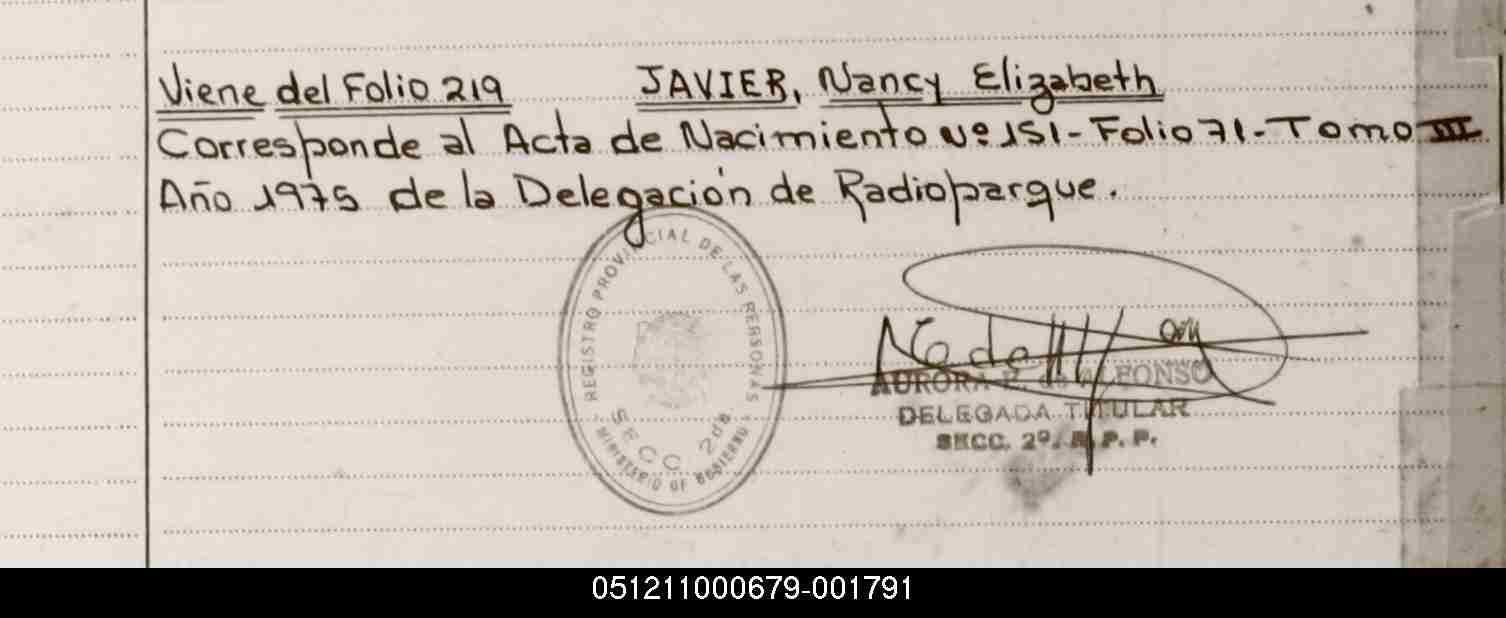 Viene del Folio 219 JAVIER, Nancy Elizabeth
Corresponde al Acta de Nacimiento Nº 151-Folio 71-Tomo III
Año 1975 de la Delegación de Radioparque.
REGISTRO PROVINCIAL DE LAS PERSONAS
SECC 2da
MINISTERIO DE GOBIERNO
AURORA de ALFONSO
DELEGADA TITULAR
SECC. 2ª. R.P.P.
051211000679-001791